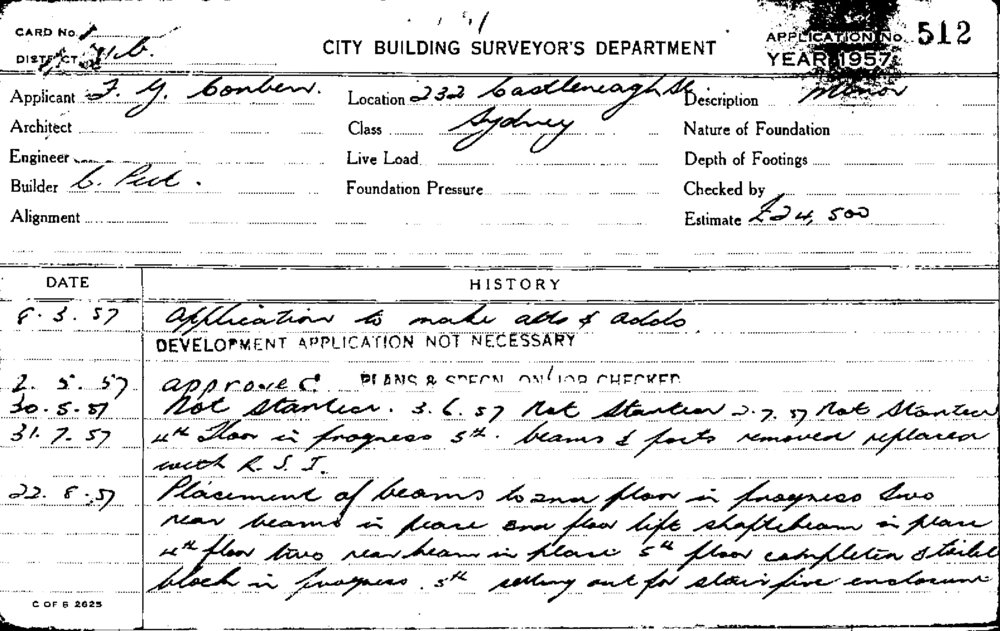 CARD No. 1
CITY BUILDING SURVEYOR'S DEPARTMENT
APPLICATION No. 512
DISTRICT
YEAR 1957
Applicant F. G. Location 232 Castlereagh St Description Minor
Architect Class Sydney Nature of Foundation
Engineer Live Load Depth of Footings
Builder C. Foundation Pressure Checked by
Alignment Estimate £24,500
DATE HISTORY
8.3.57 Application to make alts & adds
DEVELOPMENT APPLICATION NOT NECESSARY
2.5.57 approved PLANS & SPECN. ON JOB CHECKED
30.5.57 Not Started. 3.6.57 Not Started 2.7.57 Not Started
31.7.57 4th Floor in progress 5th. beams & parts removed replaced
with R.S.J.
22.8.57 Placement of beams to 2nd floor in progress two
rear beams in place 2nd floor lift shaft beam in place
4th floor two rear beam in place 5th floor completed & toilet
block in progress. 5th setting out for stair fire enclosure
C OF S 2625